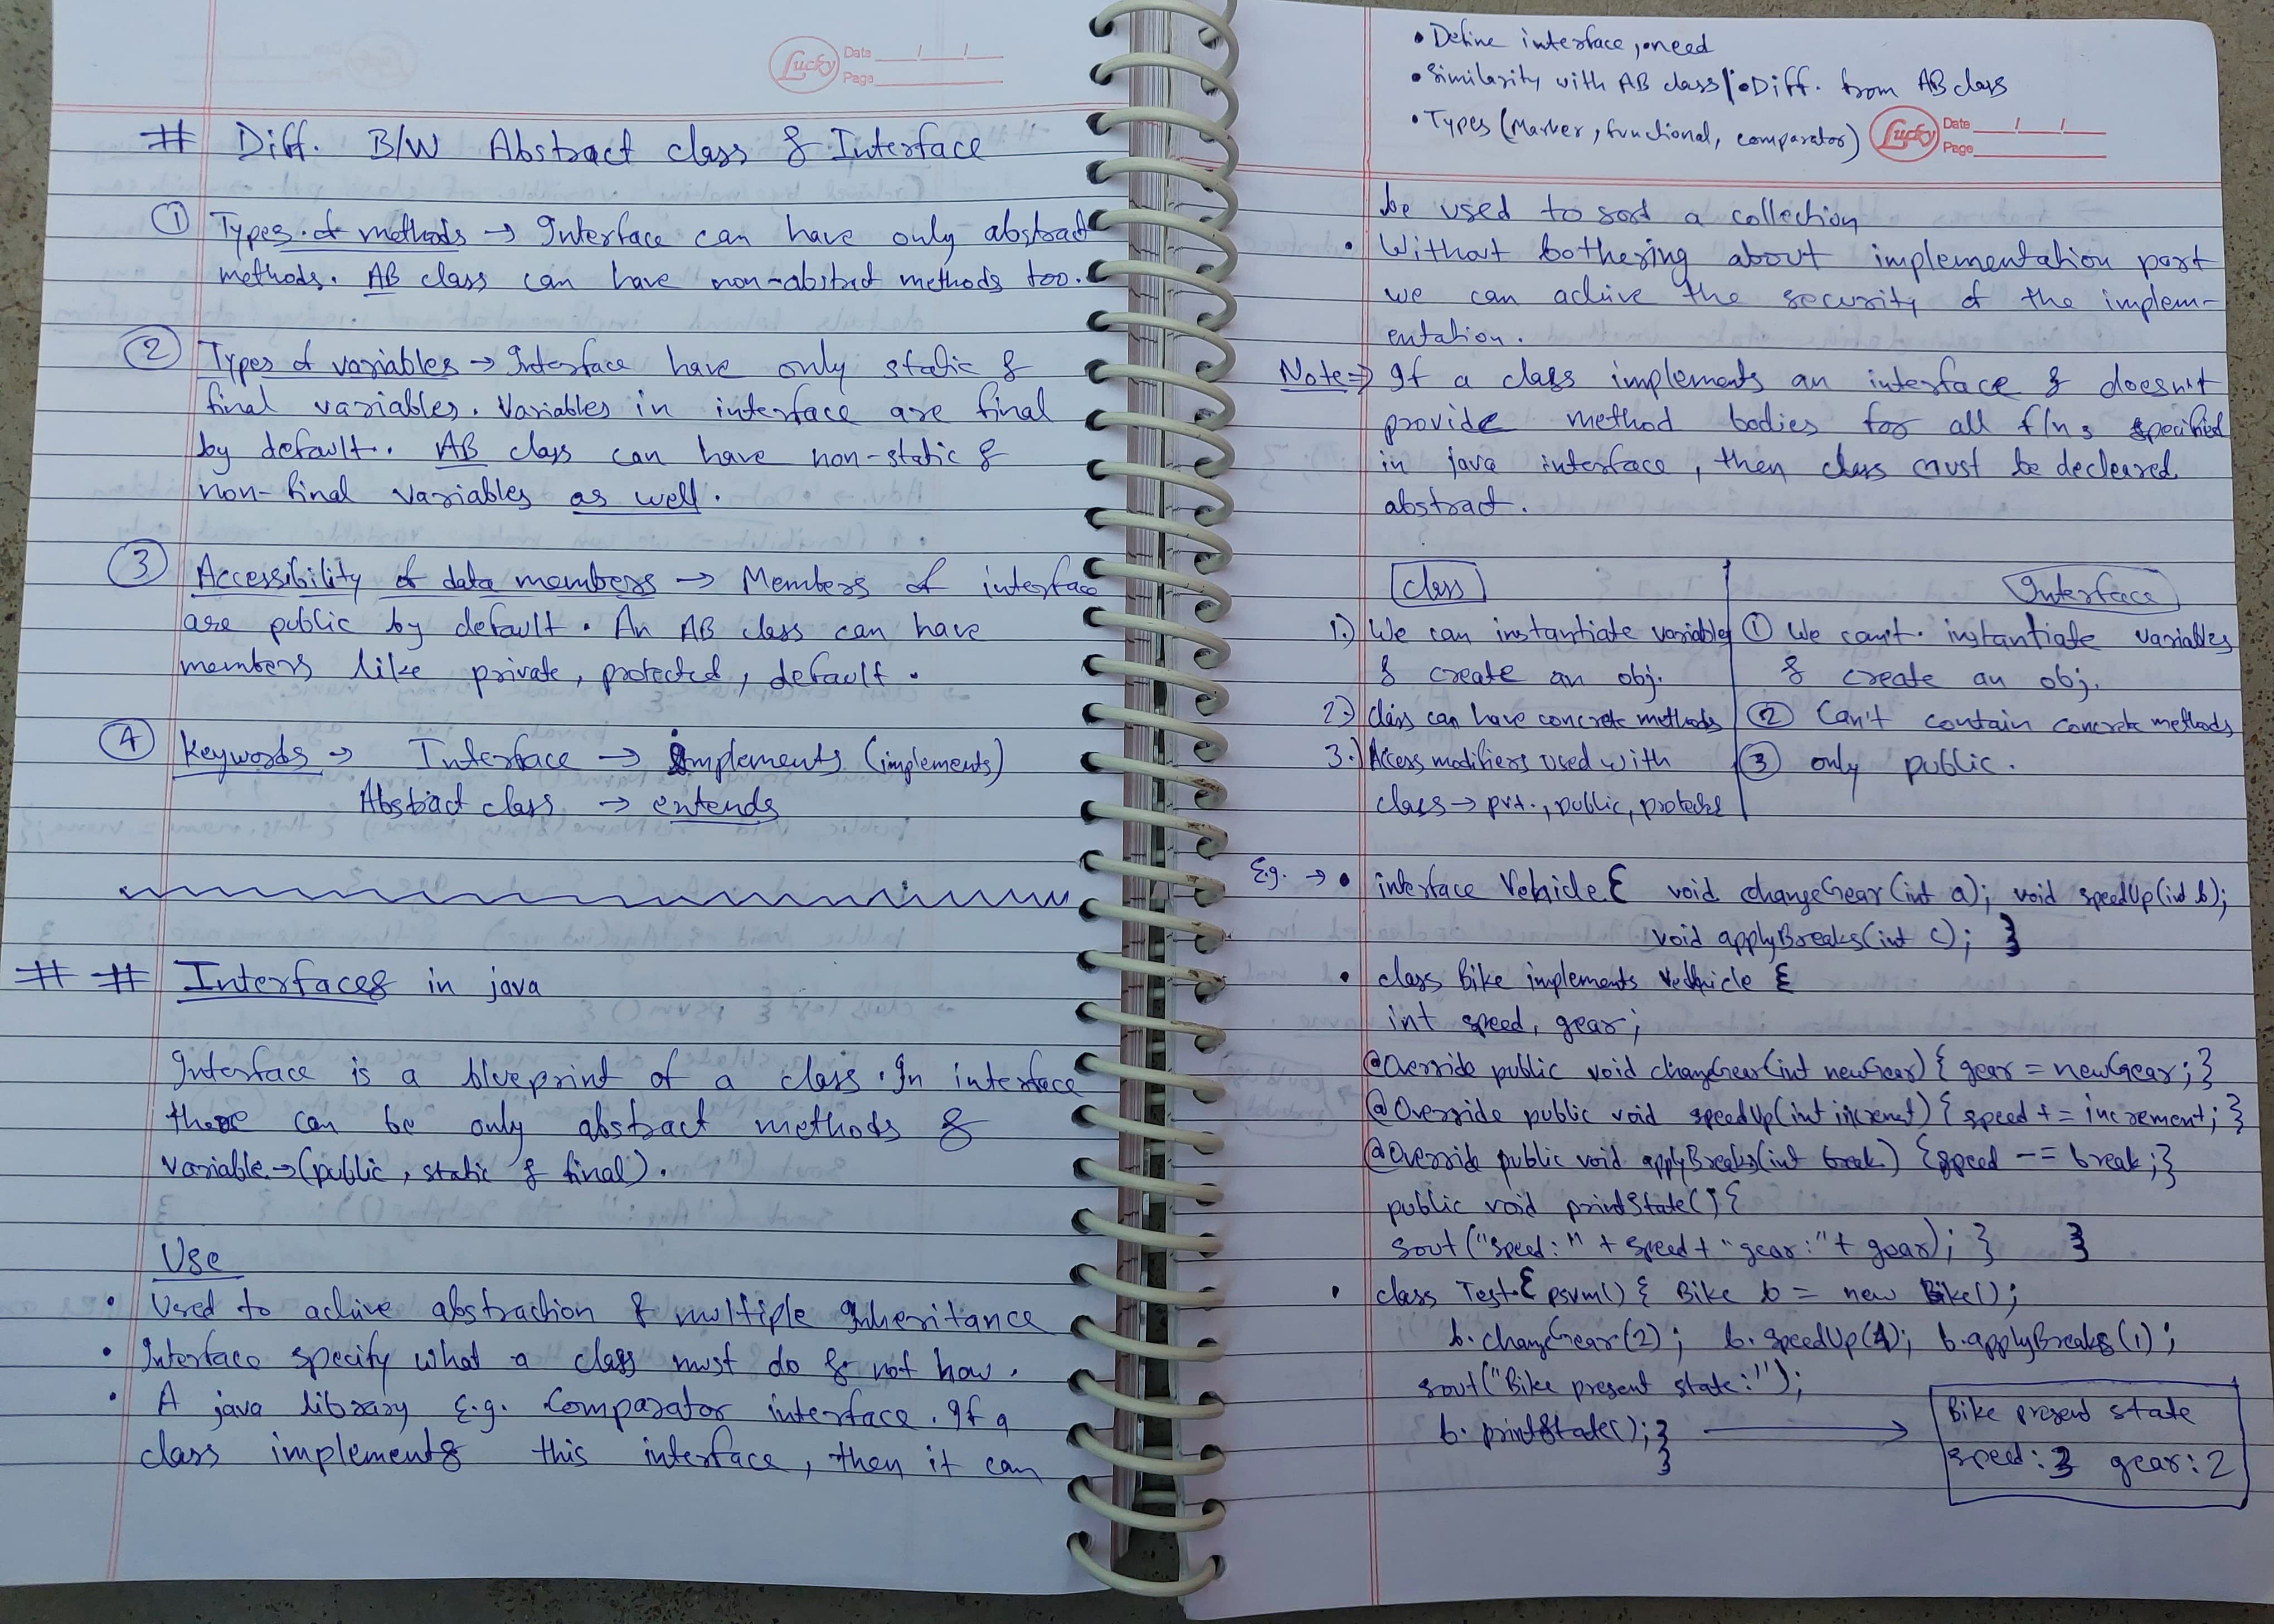 Lucky Date / /
Page
# Diff. B/W Abstract class & Interface
① Types of methods → Interface can have only abstract
methods. AB class can have non-abstract methods too.
② Types of variables → Interface have only static &
final variables. Variables in interface are final
by default. AB class can have non-static &
non-final variables as well.
③ Accessibility of data members → Members of interface
are public by default. An AB class can have
members like private, protected, default.
④ Keywords → Interface → implements (implements)
Abstract class → extends
# # Interfaces in java
Interface is a blueprint of a class. In interface
there can be only abstract methods &
variable → (public, static & final).
Use
• Used to achive abstraction & multiple Inheritance
• Interface specify what a class must do & not how.
• A java library E.g. Comparator interface. If a
class implements this interface, then it can
• Define interface, • need
• Similarity with AB class / • Diff. from AB class
• Types (Marker, functional, comparator)
Lucky Date / /
Page
be used to sort a collection
• Without bothering about implementation part
we can achive the security of the implem-
entation.
Note ⇒ If a class implements an interface & doesn't
provide method bodies for all f/ns specified
in java interface, then class must be decleared
abstract.
Class Interface
1.) We can instantiate variables ① We can't instantiate variables
& create an obj. & create an obj.
2.) Class can have concrete methods ② Can't contain concrete methods
3.) Access modifiers used with ③ only public.
class → pvt., public, protected
Eg. → • interface Vehicle { void changeGear(int a); void speedUp(int b);
void applyBreaks(int c); }
• class Bike implements Vehicle {
int speed, gear;
@Override public void changeGear(int newGear) { gear = newGear; }
@Override public void speedUp(int increment) { speed += increment; }
@Override public void applyBreaks(int break) { speed -= break; }
public void printState() {
sout("speed:" + speed + "gear:" + gear); } }
• class Test { psvm() { Bike b = new Bike();
b.changeGear(2); b.speedUp(4); b.applyBreaks(1);
sout("Bike present state:");
b.printState(); } → Bike present state
} speed: 3 gear: 2